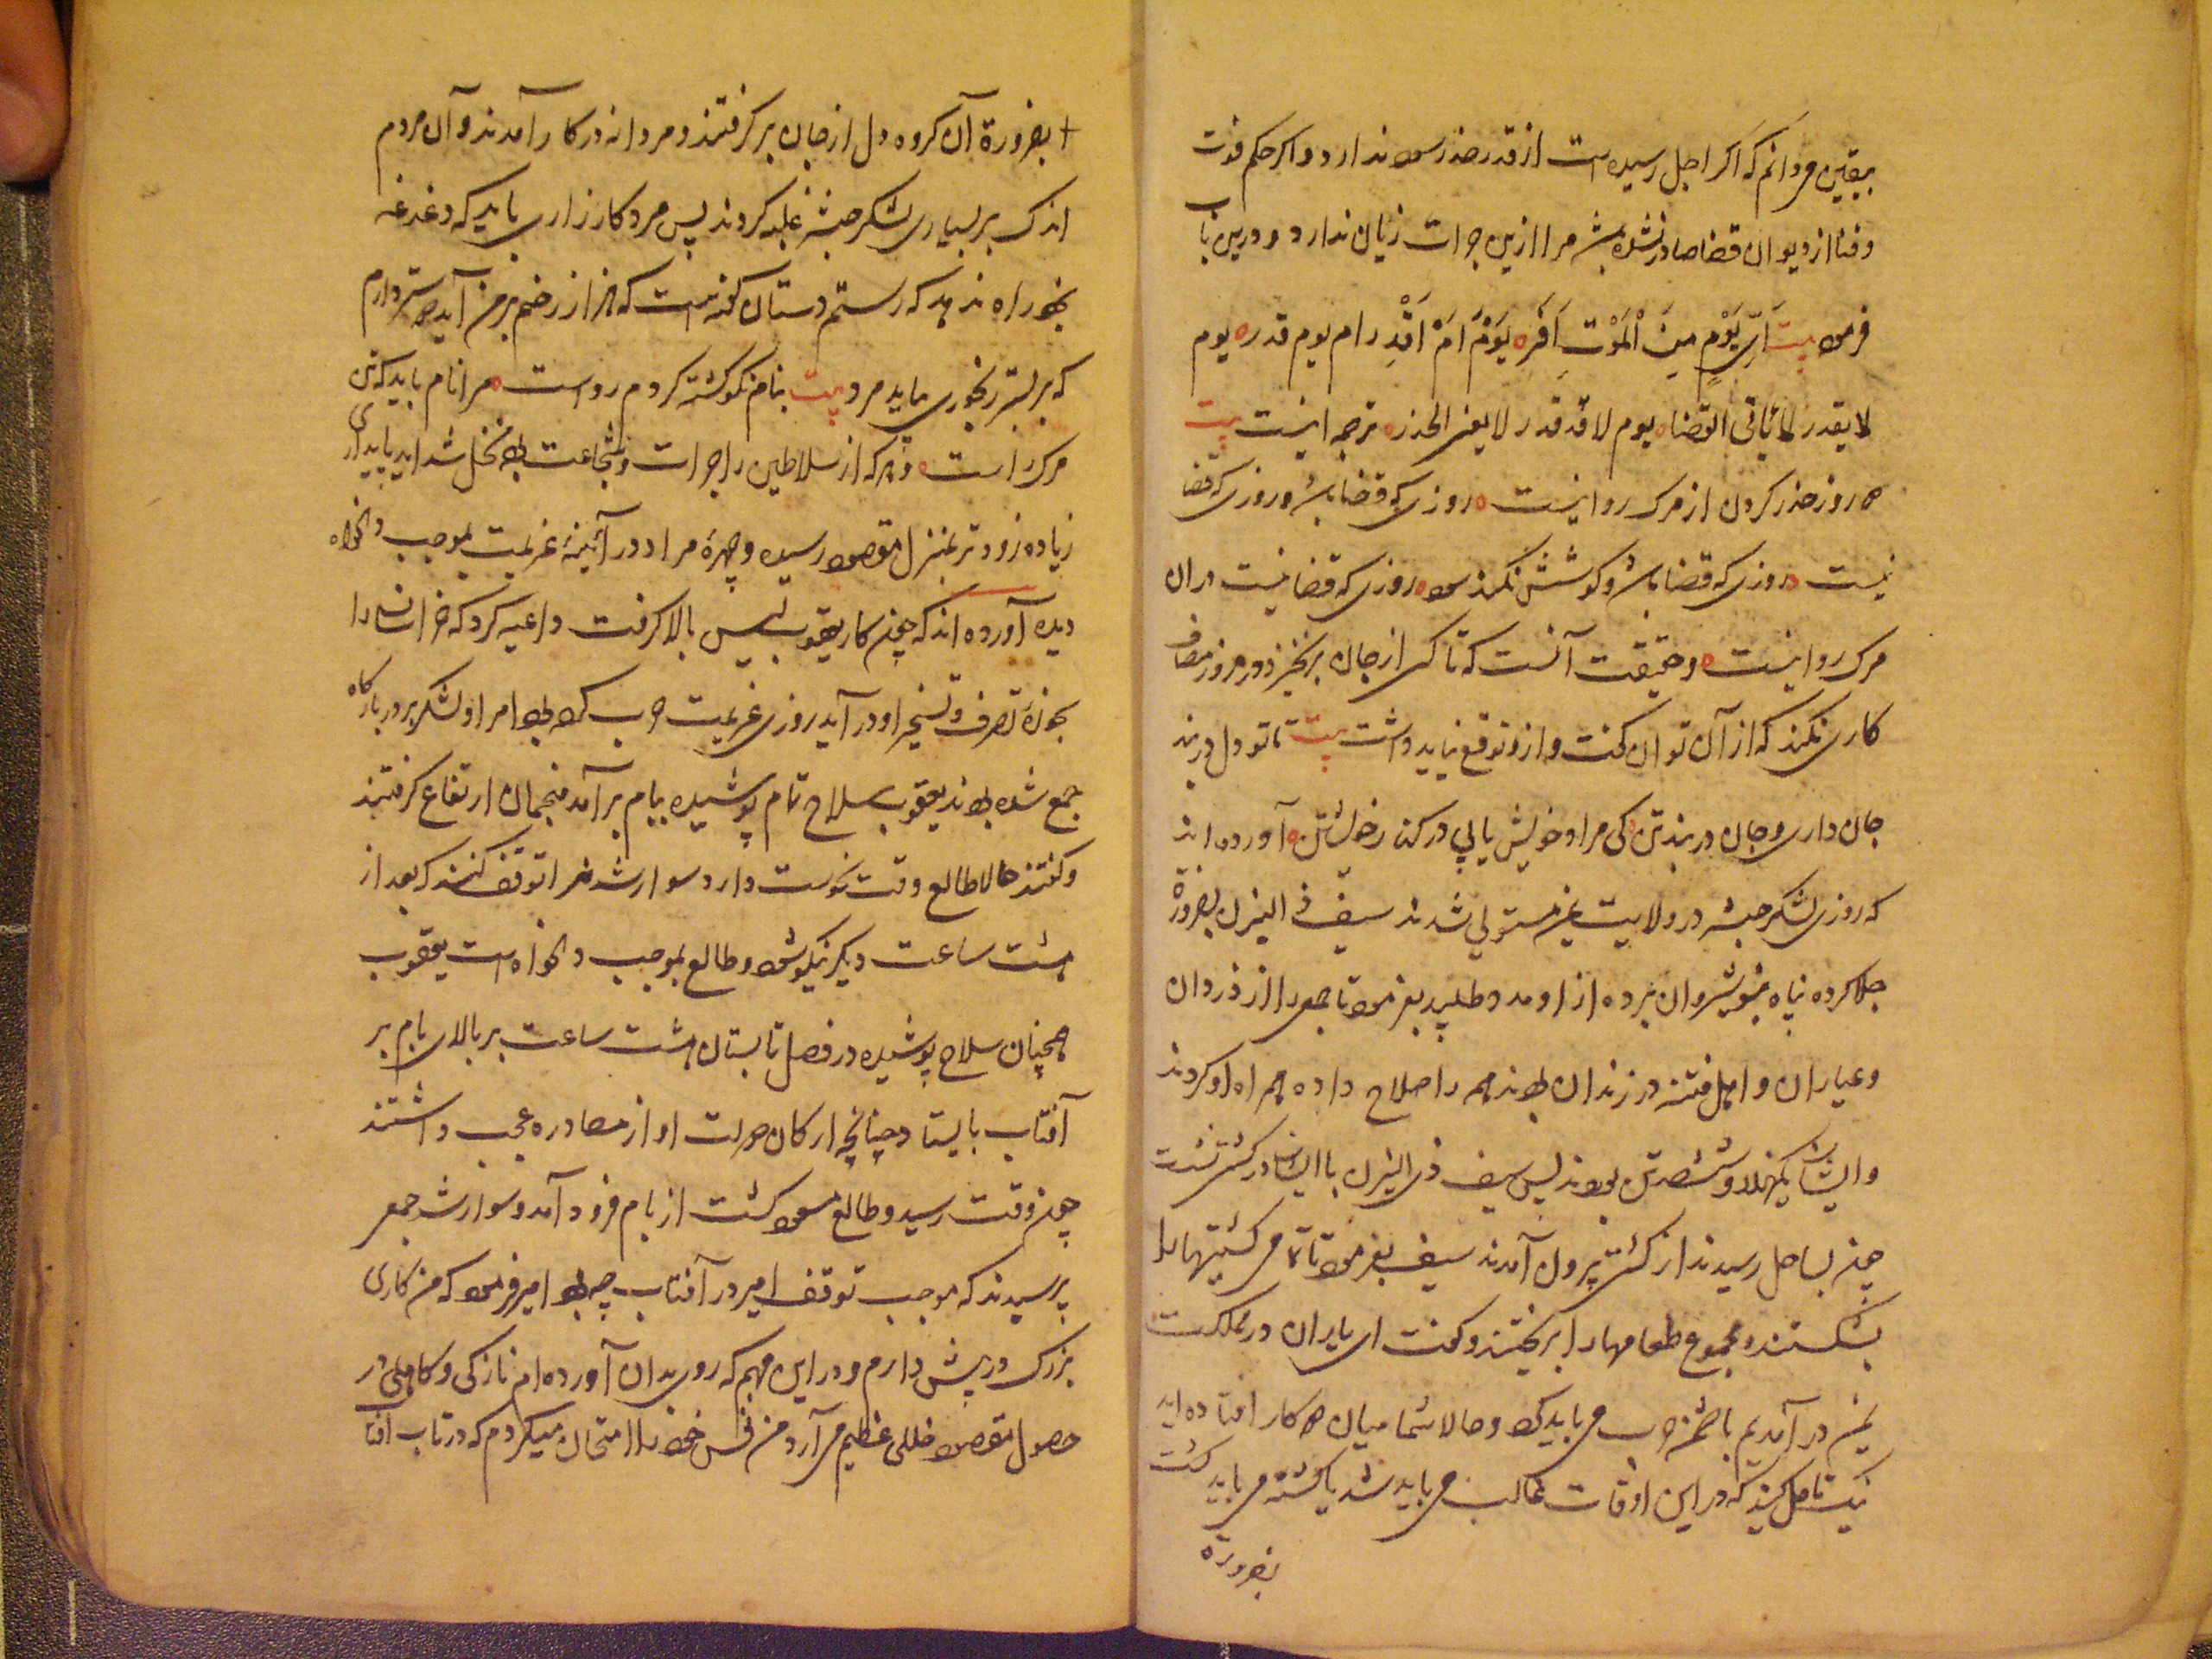 بیقین می‌دانم که اگر اجل رسیده است از قدر حذر سود ندارد و اگر حکم فوت
و فنا از دیوان قضا صادر نشده باشد مرا ازین جرات زیان ندارد و درین باب
فرمود بیت اَیّ یَوْمٍ مِنَ اْلمَوْتِ اَفَره یَوْمَ امَ اقْدِر ام یوم قدره یوم
لا یقدر لا یاتی القضاه یوم لا قد قدر لا یغنی الحذره ترجمه اینست بیت
دو روز حذر کردن از مرک روا نیست ه روزی که قضا باشد و روزی که قضا
نیست ه روزی که قضا باشد و کوشش نکند سود ه روزی که قضا نیست دران
مرک روا نیست ه و حقیقت آنست که تا کسی از جان برنخیزد در روز مصاف
کاری نکند که از آن توان کفت و ازو توقع نباید داشت بیت تا تو دل در بند
جان داری و جان در بند تن ه کی مراد خویش یابی در کنار خویشتن ه آورده اند
که روزی لشکر حبشه در ولایت یمن مستولی شدند سیف ذی الیزن بضرورة
جلا کرده پناه بنوشیروان برده از او مدد طلبید بفرمود تا جمعی را از دزدان
و عیاران و اهل فتنه در زندان بودند همه را صلاح داده همراه او کردند
و ایشان یکهزار و ششصد تن بودند پس سیف ذی الیزن با ایشان در کشتی نشست
چون بساحل رسیدند از کشتی برون آمدند سیف بفرمود تا تمامی کشتیها را
بشکستند و مجموع طعامها را بریختند و کفت ای یاران در مملکت
یمن در آمدیم با دشمن حرب می باید کرد و حالا شما میان دو کار افتاده اید
نیک تامل کنید که در این اوقات غالب می باید شد یا کشته می باید کشت
بضرورة
بضرورة آن کروه دل از جان بر کرفتند و مردانه در کار آمدند و آن مردم
اندک بر بسیاری لشکر حبشه غلبه کردند پس مرد کارزاری باید که دغدغه
بخود راه ندهد که رستم دستان کفته است که هزار زخم بر من آید دوستر دارم
که بر بستر رنجوری باید مرد بیت بنام نکو کشته کردم رواست ه مرا نام باید که تن
مرک راست ه و هر که از سلاطین را جرات و شجاعت بود تحمل شداید پایداری
زیاده زودتر بمنزل مقصود رسیده و چهرهٔ مراد در آئینهٔ عزیمت بموجب دلخواه
دیده آورده اند که چون کار یعقوب لیس بالا کرفت داعیه کرد که خراسان را
بحوزهٔ تصرف و تسخیر او در آید روزی عزیمت حرب کرده بود امرا و لشکر بر در بارکاه
جمع شده بودند یعقوب سلاح تمام پوشیده ببام برآمد منجمان ارتفاع کرفتند
و کفتند حالا طالع وقت نحوست دارد سوار شدن را توقف کنند که بعد از
هشت ساعت دیکر نیکو شود و طالع بموجب دلخواه است یعقوب
همچنان سلاح پوشیده در فصل تابستان هشت ساعت بر بالای بام بر
آفتاب بایستاد چنانچه ارکان دولت او از مصادره عجب داشتند
چون وقت رسید و طالع مسعود کشت از بام فرود آمد و سوار شد جمعی
پرسیدند که موجب توقف امیر در آفتاب چه بود امیر فرمود که من کاری
بزرک در پیش دارم و در این مهم که روی بدان آورده ام نازکی و کاهلی در
حصول مقصود خللی عظیم می آرد من نفس خود را امتحان میکردم که در تاب افتا